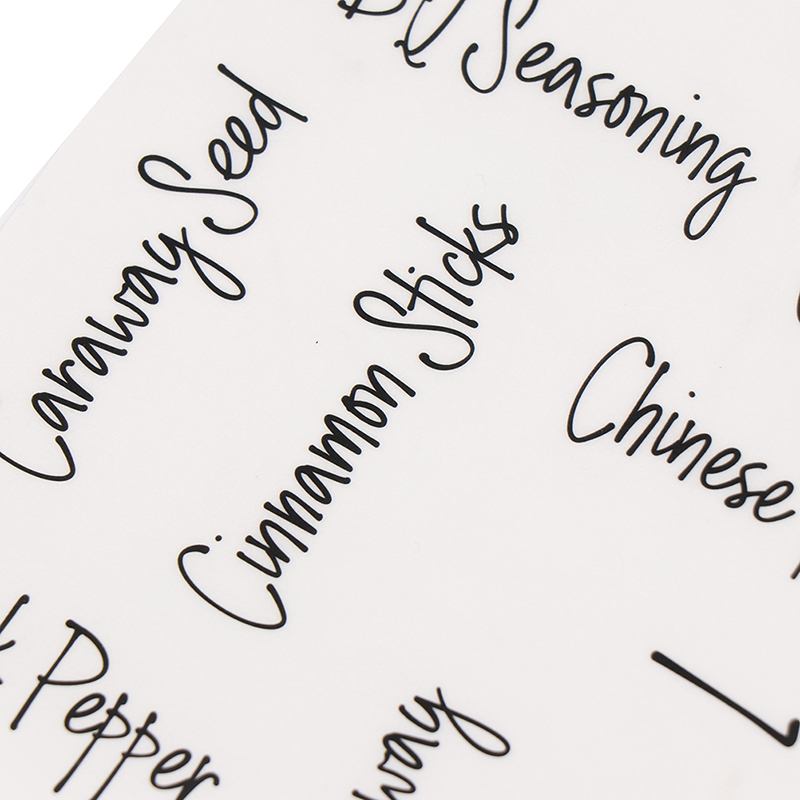 Seasoning
Caraway Seed
Cinnamon Sticks
Chinese
Pepper